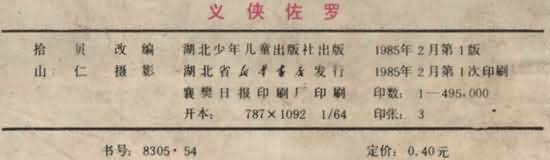 义侠佐罗
拾贝改编 湖北少年儿童出版社出版 1985年2月第1版
山仁摄影 湖北省新华书店发行 1985年2月第1次印刷
襄樊日报印刷厂印刷 印数：1—495,000
开本：787×1092 1/64 印张：3
书号：8305·54 定价：0.40元